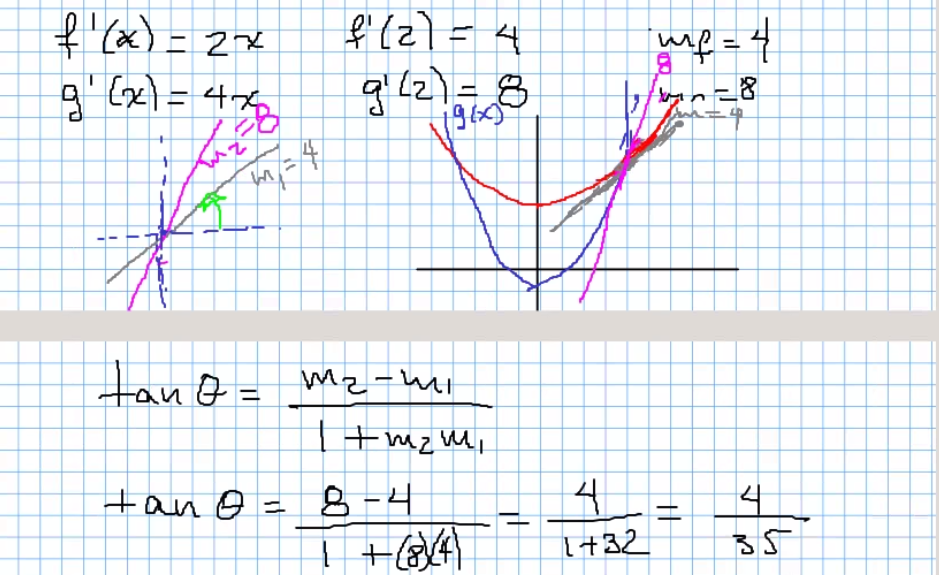 f'(x) = 2x f'(2) = 4 mf = 4
g'(x) = 4x g'(2) = 8 = 8
8
g(x)
m = 4
m2 = 8
m1 = 4
tan θ = m2 - m1 / 1 + m2 m1
tan θ = 8 - 4 / 1 + (8)(4) = 4 / 1+32 = 4 / 35